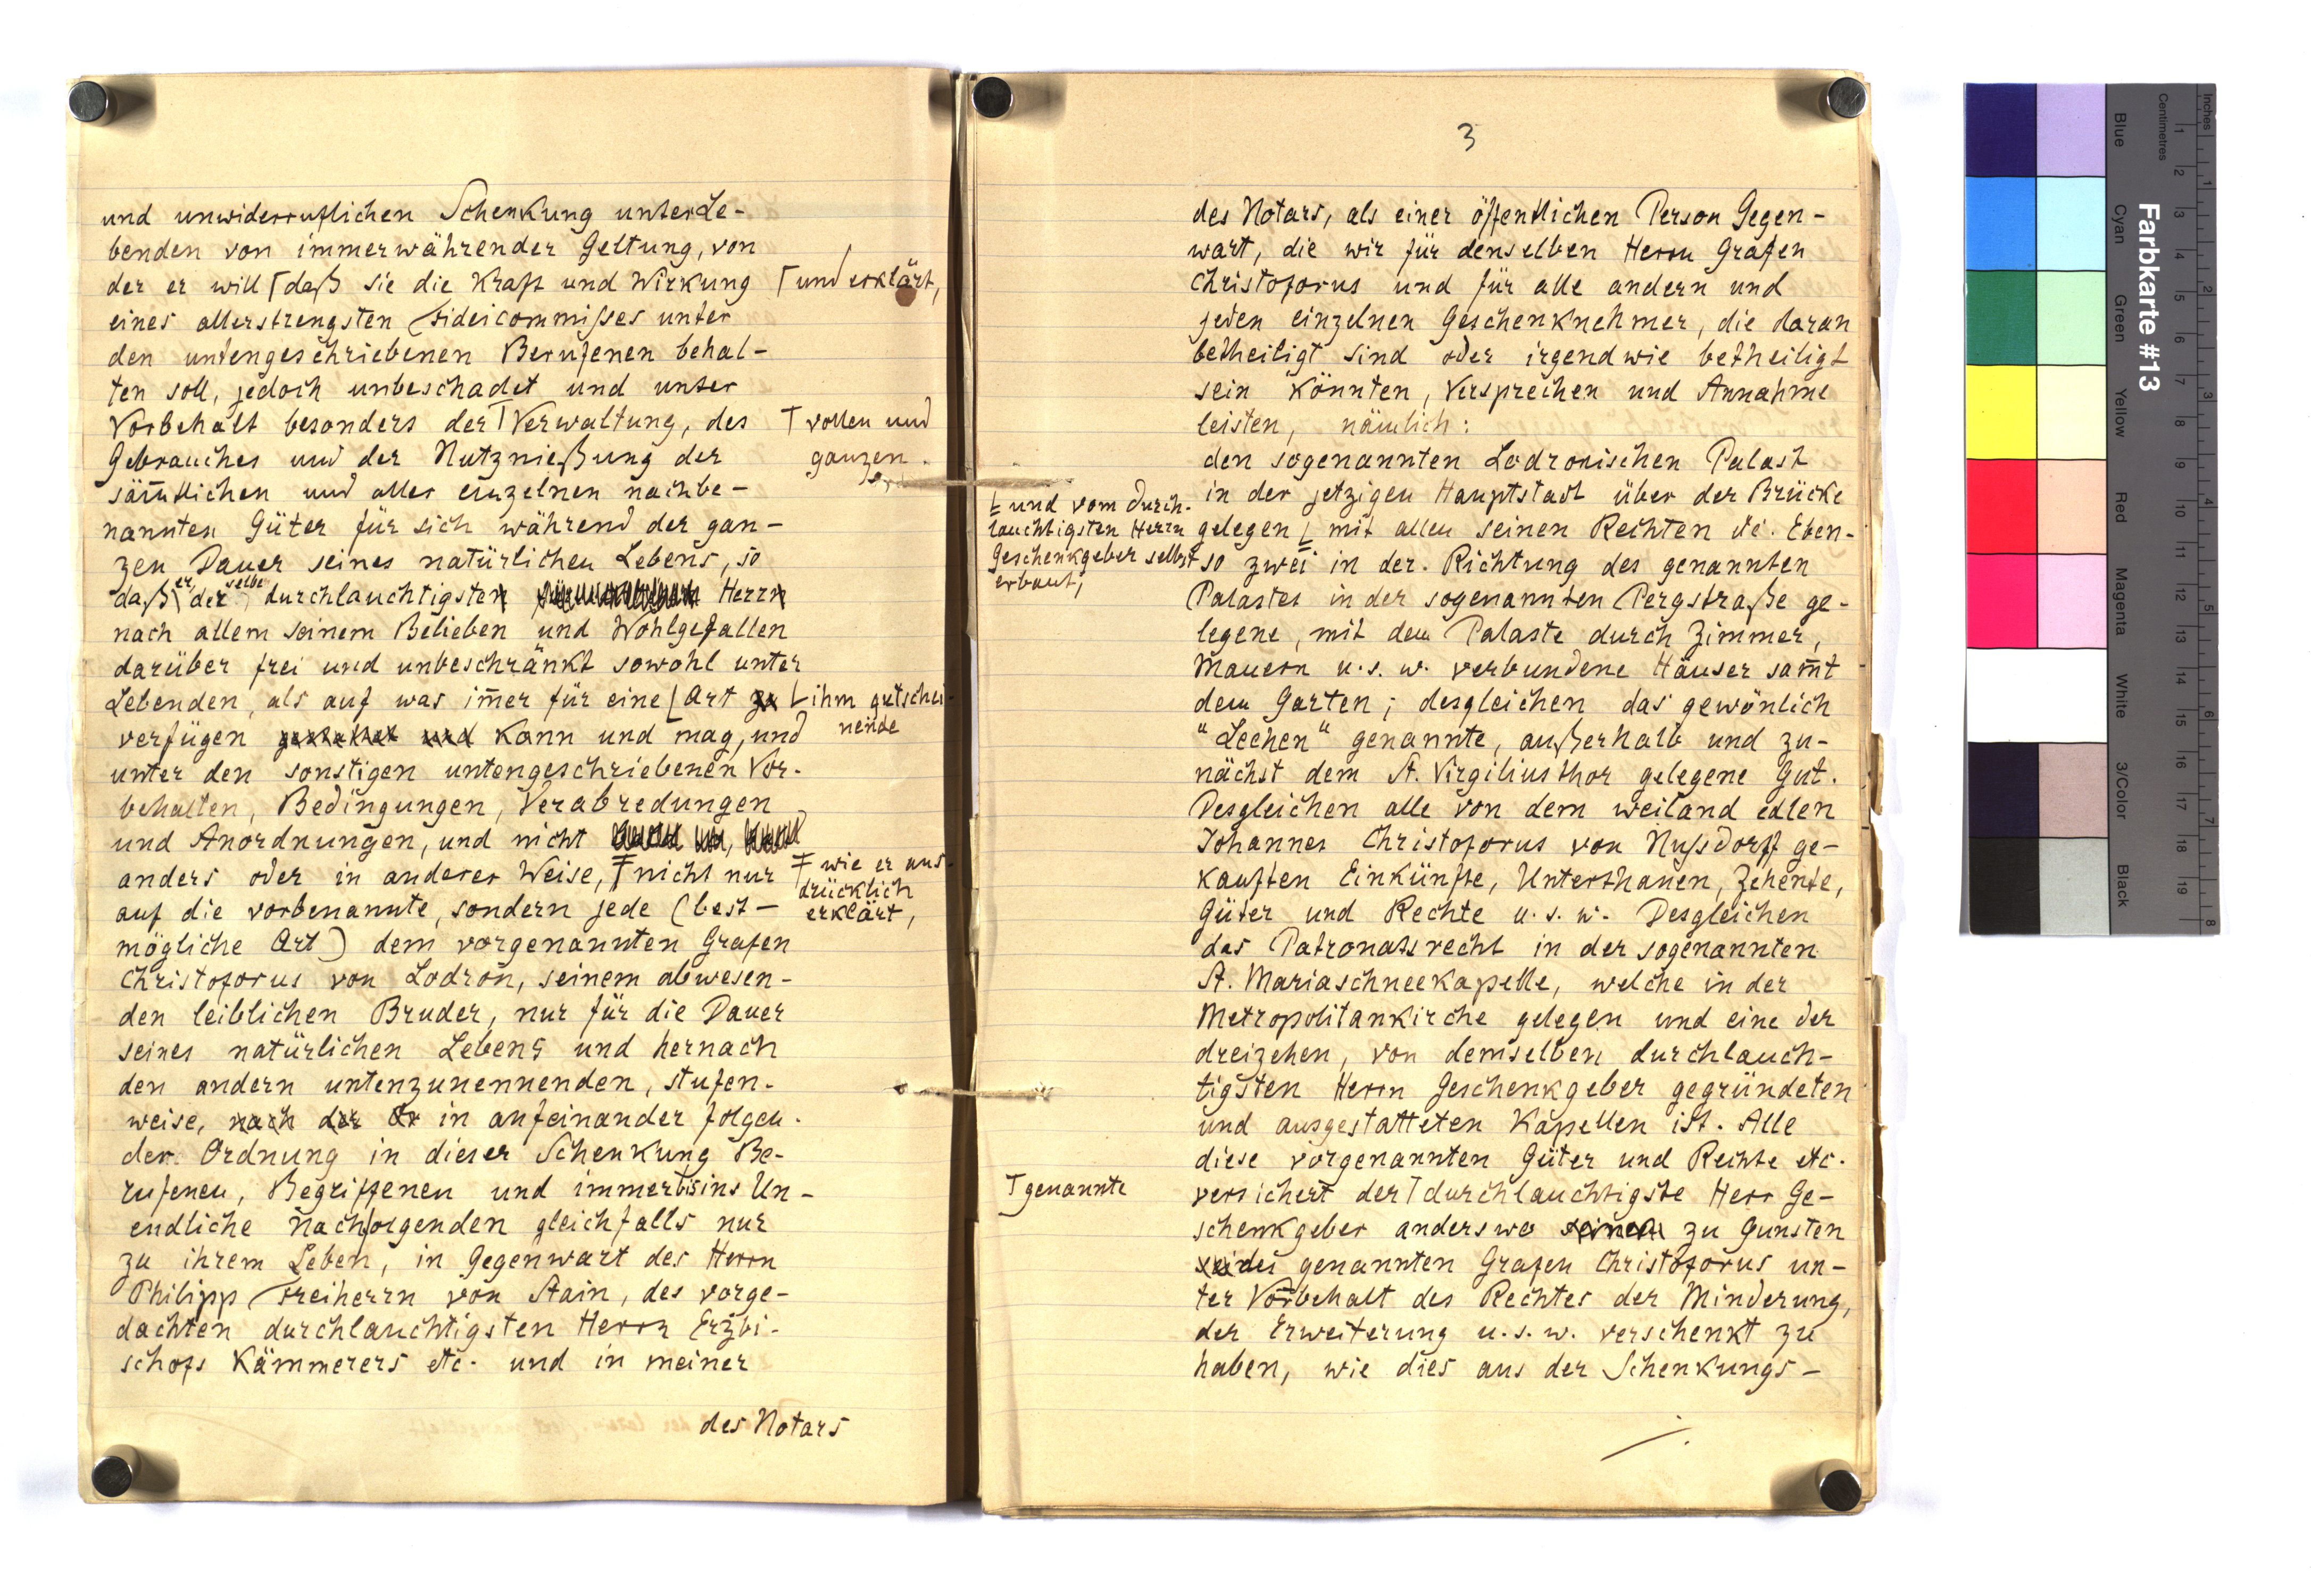 und unwiderruflichen Schenkung unter Le-
benden von immerwährender Geltung, von
der er will ⌈ daß sie die Kraft und Wirkung
⌈ und erklärt,
eines allerstrengsten Fideicommißes unter
den untengeschriebenen Berufenen behal-
ten soll, jedoch unbeschadet und unter
Vorbehalt besonders der ⌈ Verwaltung, des
⌈ vollen und
ganzen.
Gebrauches und der Nutznießung der
säm̄tlichen und aller einzelnen nachbe-
nannten Güter für sich während der gan-
zen Dauer seines natürlichen Lebens, so
daß er, der selbe durchlauchtigsten Herrn
nach allem seinem Belieben und Wohlgefallen
darüber frei und unbeschränkt sowohl unter
Lebenden, als auf was im̄er für eine ⌊ Art zu
⌊ ihm gutschei-
nende
verfügen gestattet und kann und mag, und
unter den sonstigen untengeschriebenen Vor-
behalten, Bedingungen, Verabredungen
und Anordnungen, und nicht
anders oder in anderer Weise, Ŧ nicht nur
Ŧ wie er aus-
drücklich
erklärt,
auf die vorbenannte, sondern jede (best-
mögliche Art) dem vorgenannten Grafen
Christoforus von Lodron, seinem abwesen-
den leiblichen Bruder, nur für die Dauer
seines natürlichen Lebens und hernach
den andern untenzunennenden, stufen-
weise, nach der Or in aufeinander folgen-
der Ordnung in dieser Schenkung Be-
rufenen, Begriffenen und immer bis ins Un-
endliche Nachfolgenden gleichfalls nur
zu ihrem Leben, in Gegenwart des Herrn
Philipp Freiherrn von Stain, des vorge-
dachten durchlauchtigsten Herrn Erzbi-
schofs Kämmerers etc. und in meiner
des Notars
3
des Notars, als einer öffentlichen Person Gegen-
wart, die wir für denselben Herrn Grafen
Christoforus und für alle andern und
jeden einzelnen Geschenknehmer, die daran
betheiligt sind oder irgendwie betheiligt
sein könnten, Versprechen und Annahme
leisten, nämlich:
den sogenannten Lodronischen Palast
in der jetzigen Hauptstadt über der Brücke
gelegen ⌊ mit allen seinen Rechten etc. Eben-
⌊ und vom durch-
lauchtigsten Herrn
Geschenkgeber selbst
erbaut,
so zwei in der Richtung des genannten
Palastes in der sogenannten Pergstraße ge-
legene, mit dem Palaste durch Zimmer,
Mauern u. s. w. verbundene Häuser sam̄t
dem Garten; desgleichen das gewönlich
"Leehen" genannte, außerhalb und zu-
nächst dem St. Virgiliusthor gelegene Gut.
Desgleichen alle von dem weiland edlen
Johannes Christoforus von Nußdorff ge-
kauften Einkünfte, Unterthanen, Zehente,
Güter und Rechte u. s. w. Desgleichen
das Patronatsrecht in der sogenannten
St. Mariaschneekapelle, welche in der
Metropolitankirche gelegen und eine der
dreizehen, von demselben durchlauch-
tigsten Herrn Geschenkgeber gegründeten
und ausgestatteten Kapellen ist. Alle
diese vorgenannten Güter und Rechte etc.
versichert der ⌈ durchlauchtigste Herr Ge-
⌈ genannte
schenkgeber anderswo seinem zu Gunsten
des genannten Grafen Christoforus un-
ter Vorbehalt des Rechtes der Minderung,
der Erweiterung u. s. w. verschenkt zu
haben, wie dies aus der Schenkungs-
Inches
Centimetres
1 2 3 4 5 6 7 8 9 10 11 12 13 14 15 16 17 18 19
1 2 3 4 5 6 7 8
Farbkarte #13
Blue
Cyan
Green
Yellow
Red
Magenta
White
3/Color
Black